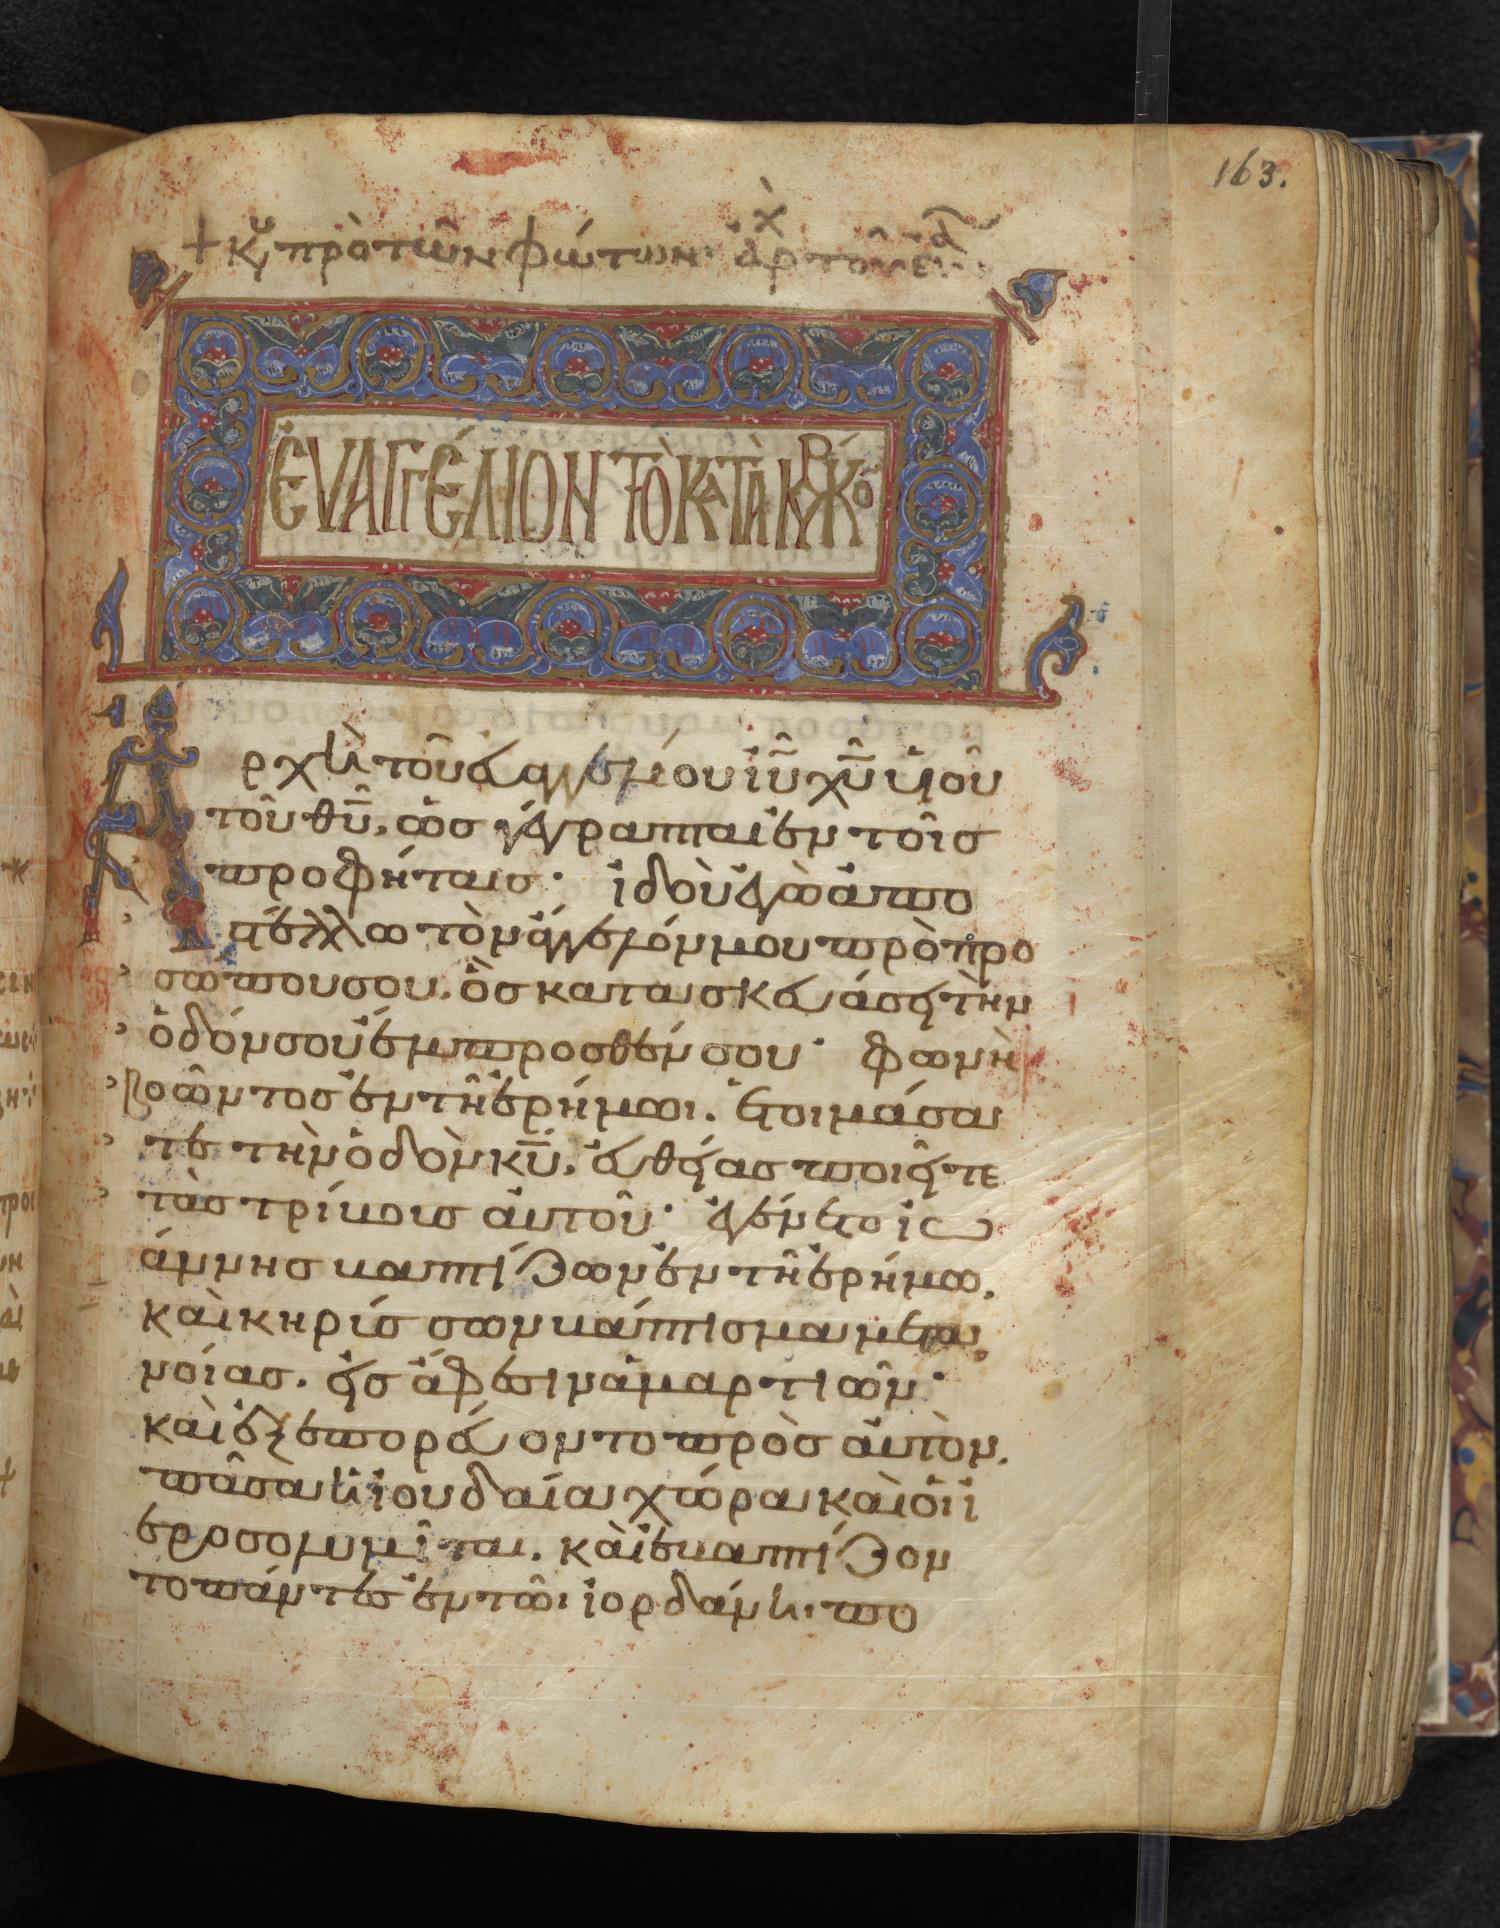 163.
+ Κυ πρὸ τῶν φώτων· ἀρχ τοῦ
ἐυαγγέλιον τὸ κατὰ μάρκον
Αρχὴ τοῦ ἐυαγγελίου ἰῦ χῦ υἱοῦ
τοῦ θῦ, ὡσ γέγραπται ἐν τοῖσ
προφήταισ· ἰδοὺ ἐγὼ ἀπο
στέλλω τὸν ἄγγελόν μου πρὸ προ
σώπου σου. ὃσ κατασκευάσει τὴν
ὁδόν σου ἔμπροσθέν σου· φωνὴ
βοῶντοσ ἐν τῆ ἐρήμωι. ἑτοιμάσα
τε τὴν ὁδὸν κῦ. ἐυθείασ ποιεῖτε
τὰσ τρίβουσ ἀυτοῦ· ἐγένετο ἰω
άννησ βαπτίζων ἐν τῆ ἐρήμω.
καὶ κηρύσσων βάπτισμα μετα
νοίασ. εἰσ ἄφεσιν ἁμαρτιῶν·
καὶ ἐξεπορεύοντο πρὸσ ἀυτὸν.
πᾶσα ἡ ἰουδαία χώρα καὶ ὁι ἱ
εροσολυμῖται. καὶ ἐβαπτίζον
το πάντεσ ἐν τῶι ἰορδάνηι πο